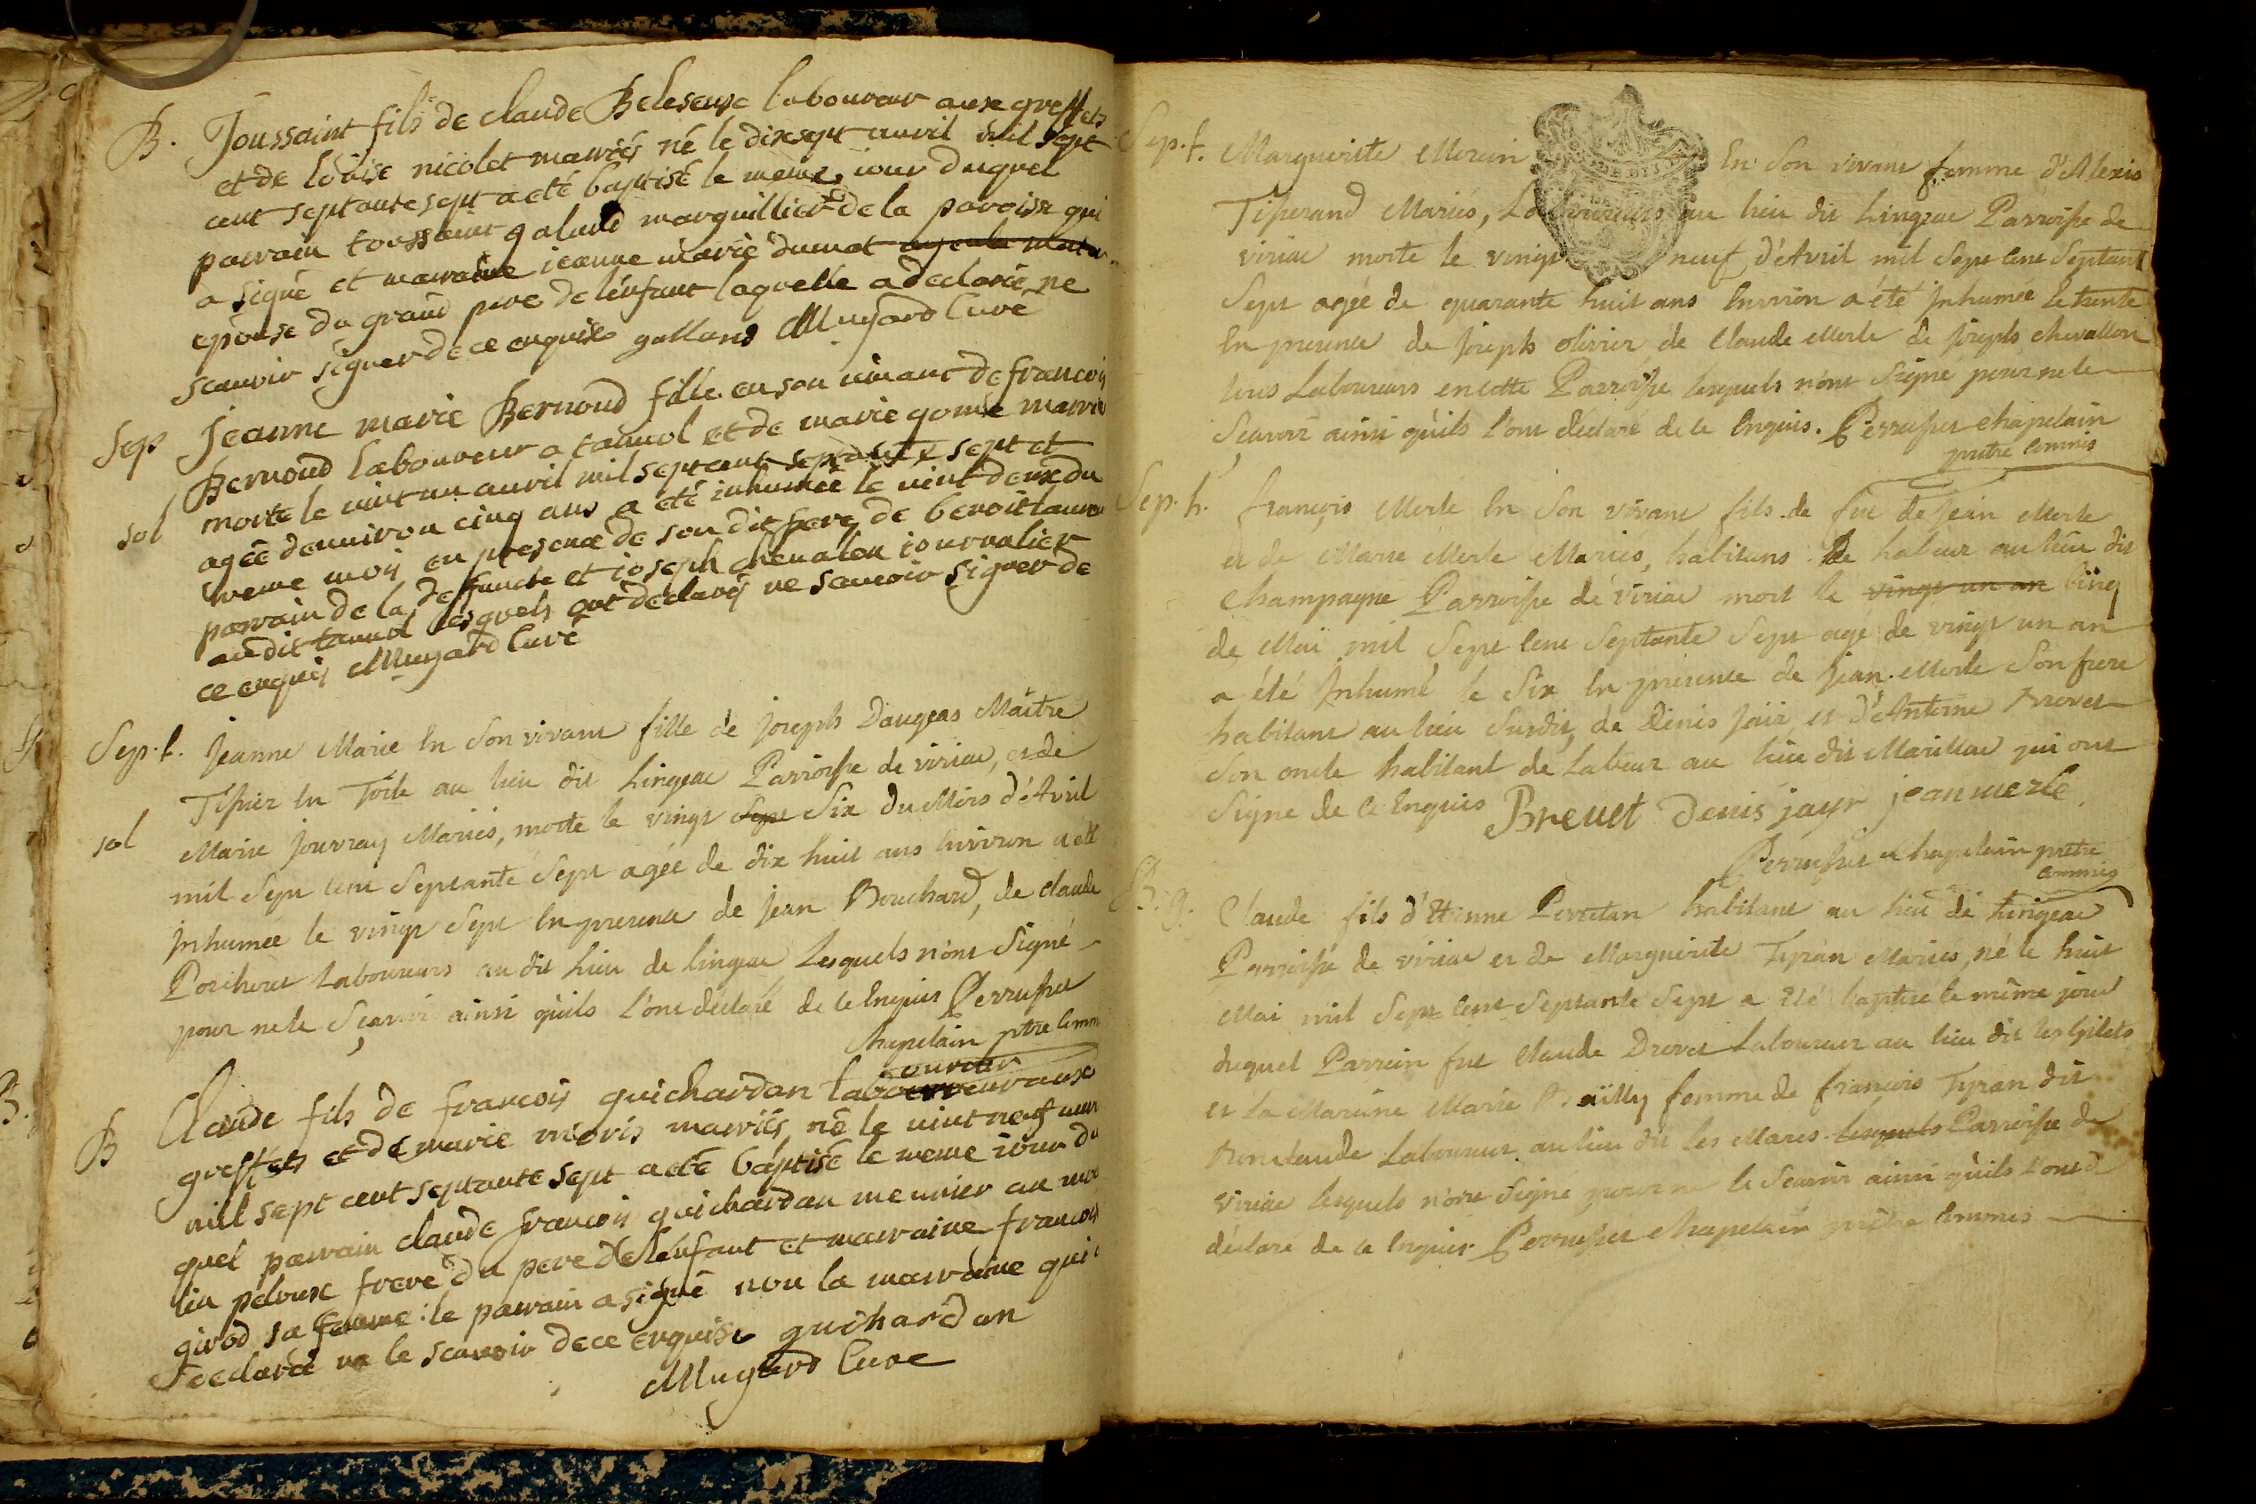 B. Toussaint fils de claude Beleseuse laboureur aux greffets
et de loüise nicolet mariés né le dixsept auril mil sept
cent septante sept a eté baptisé le meme iour duquel
parrain toussaint galand marguillier de la paroisse qui
a signé et marraine ieanne marie dumat
epouse du grand pere de l'enfant laquelle a declaré ne
scauoir signer de ce enquise galland Mugard Curé
Sep Jeanne marie Bernoud fille en son uiuant de francois
Bernoud laboureur a tanuol et de marie gome mariés
sol morte le uint un auril mil sept cent septante sept et
agée d'enuiron cinq ans a été inhumée le uint deux du
meme mois en presence de son dit pere, de benoit
parrain de la deffuncte et ioseph cheualon iournalier
audit tanuol lesquels ont déclarés ne scauoir signer de
ce enquis Mugard Curé
Sep. f. Jeanne Marie En Son vivant fille de joseph Daugeas Maître
Tissier En Toile au lieu dit Lingeac Parroisse de viriac, et de
sol Marie jouvray Mariés, morte le vingt Sept Six du Mois d'Avril
mil Sept Cent Septante Sept agée de dix huit ans Environ a été
jnhumée le vingt Sept En presence de jean Bouchard, de claude
Porcheret Laboureurs au dit Lieu de lingeac Lesquels n'ont Signé
pour ne le Sçavoir ainsi qu'ils l'ont déclaré de ce Enquis Perrusset
Chapelain ptre comm
ouurier
B Claude fils de francois guichardan laboureur aux
greffets et de marie moris mariés né le uint neuf auril
mil sept cent septante sept a eté baptisé le meme iour du
quel parrain claude francois guichardan meunier au mou
lin peloux frere du pere de l'enfant et marraine francois
girod sa femme : le parrain a signé non la marraine qui a
declaré ne le scauoir de ce enquise guichardan
Mugard Curé
Sep. f. Marguerite Morin En Son vivant femme d'Alexis
Tiperand Mariés, Laboureurs au lieu dit Lingeac Parroisse de
viriac morte le vingt neuf d'Avril mil Sept Cent Septante
Sept agée de quarante huit ans Environ a été jnhumée le trente
En presence de joseph olivier, de Claude Merle de joseph chevallon
tous Laboureurs en cette Parroisse lesquels n'ont Signé pour ne le
Scavoir ainsi qu'ils l'ont déclaré de ce Enquis. Perrusset chapelain
prêtre Commis
Sep. h. françois Merle En Son vivant fils de feu de jean Merle
et de Marie Merle Mariés, habitans de labeur au lieu dit
Champagne Parroisse de viriac mort le vingt un an Cinq
de Mai mil Sept Cent Septante Sept agé de vingt un an
a été jnhumé le Six En presence de jean Merle Son frere
habitant au lieu Susdit, de Dénis jair et d'Antoine Brevet
Son oncle habitant de Labeur au lieu dit Marillac qui ont
Signe de ce Enquis Breuet Denis jayr jean merle
Perrusset chapelain prêtre
commis
B. g. Claude fils d'Etienne Perretan habitant au lieu de Lingeac
Parroisse de viriac et de Marguerite Tyran Mariés, né le huit
Mai mil Sept Cent Septante Sept a été baptisé le même jour
duquel Parrain fut Claude Drevet Laboureur au lieu dit les Gilets
et La Maraine Marie femme de françois Tyran dit
Laboureur au lieu dit les Mares lesquels Parroisse de
viriac lesquels n'ont Signe pour ne le Scavoir ainsi qu'ils l'ont
déclaré de ce Enquis Perrusset chapelain prêtre Commis